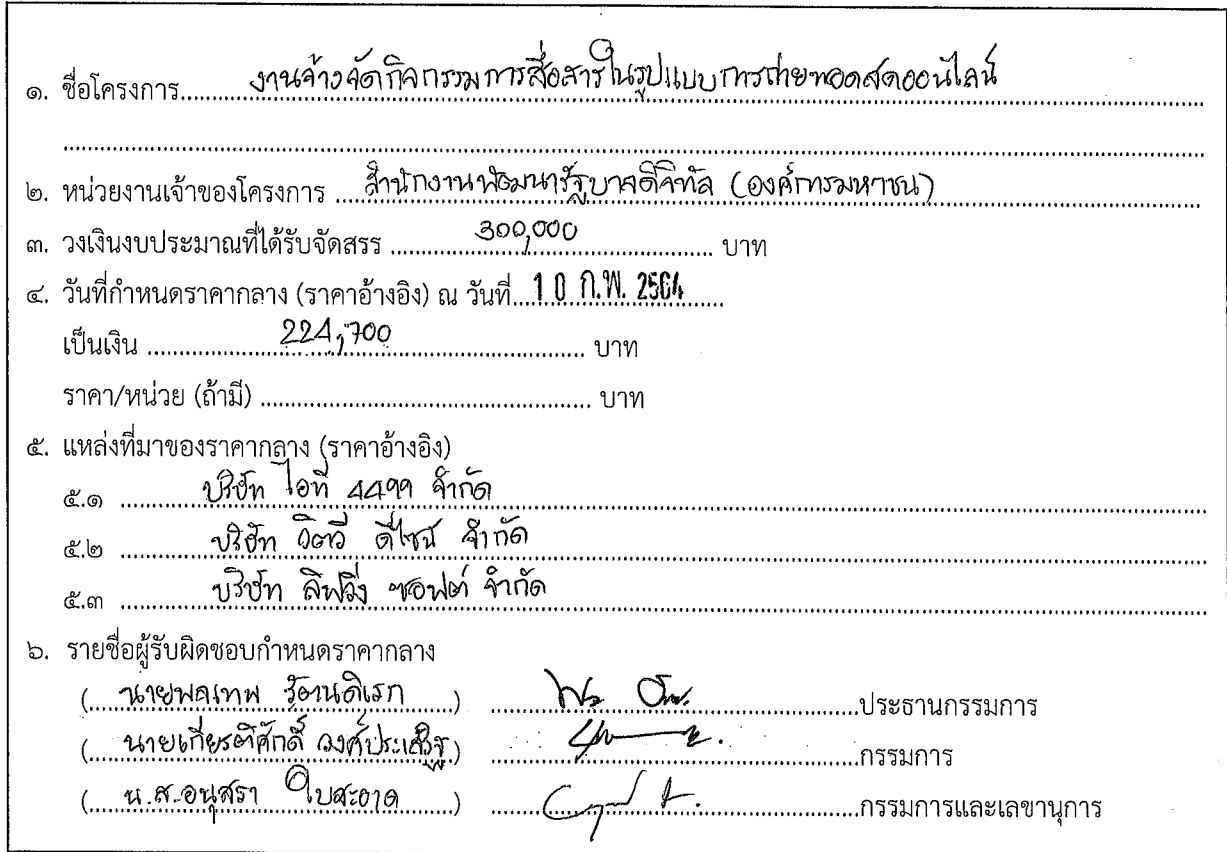 ๑. ชื่อโครงการ.....งานจ้างจัดกิจกรรมการสื่อสารในรูปแบบการถ่ายทอดสดออนไลน์.....
๒. หน่วยงานเจ้าของโครงการ .....สำนักงานพัฒนารัฐบาลดิจิทัล (องค์การมหาชน).....
๓. วงเงินงบประมาณที่ได้รับจัดสรร .....300,000..... บาท
๔. วันที่กำหนดราคากลาง (ราคาอ้างอิง) ณ วันที่...10 ก.พ. 2564.....
เป็นเงิน .....224,700..... บาท
ราคา/หน่วย (ถ้ามี) ..... บาท
๕. แหล่งที่มาของราคากลาง (ราคาอ้างอิง)
๕.๑ .....บริษัท ไอที 4499 จำกัด.....
๕.๒ .....บริษัท วิตวี ดีไซน์ จำกัด.....
๕.๓ .....บริษัท ลิฟวิ่ง ซอฟต์ จำกัด.....
๖. รายชื่อผู้รับผิดชอบกำหนดราคากลาง
(.....นายพลเทพ รัตนดิเรก.....) .....ประธานกรรมการ
(.....นายเกียรติศักดิ์ วงศ์ประเสริฐ) .....กรรมการ
(.....น.ส.อนุสรา ใบสะอาด.....) .....กรรมการและเลขานุการ